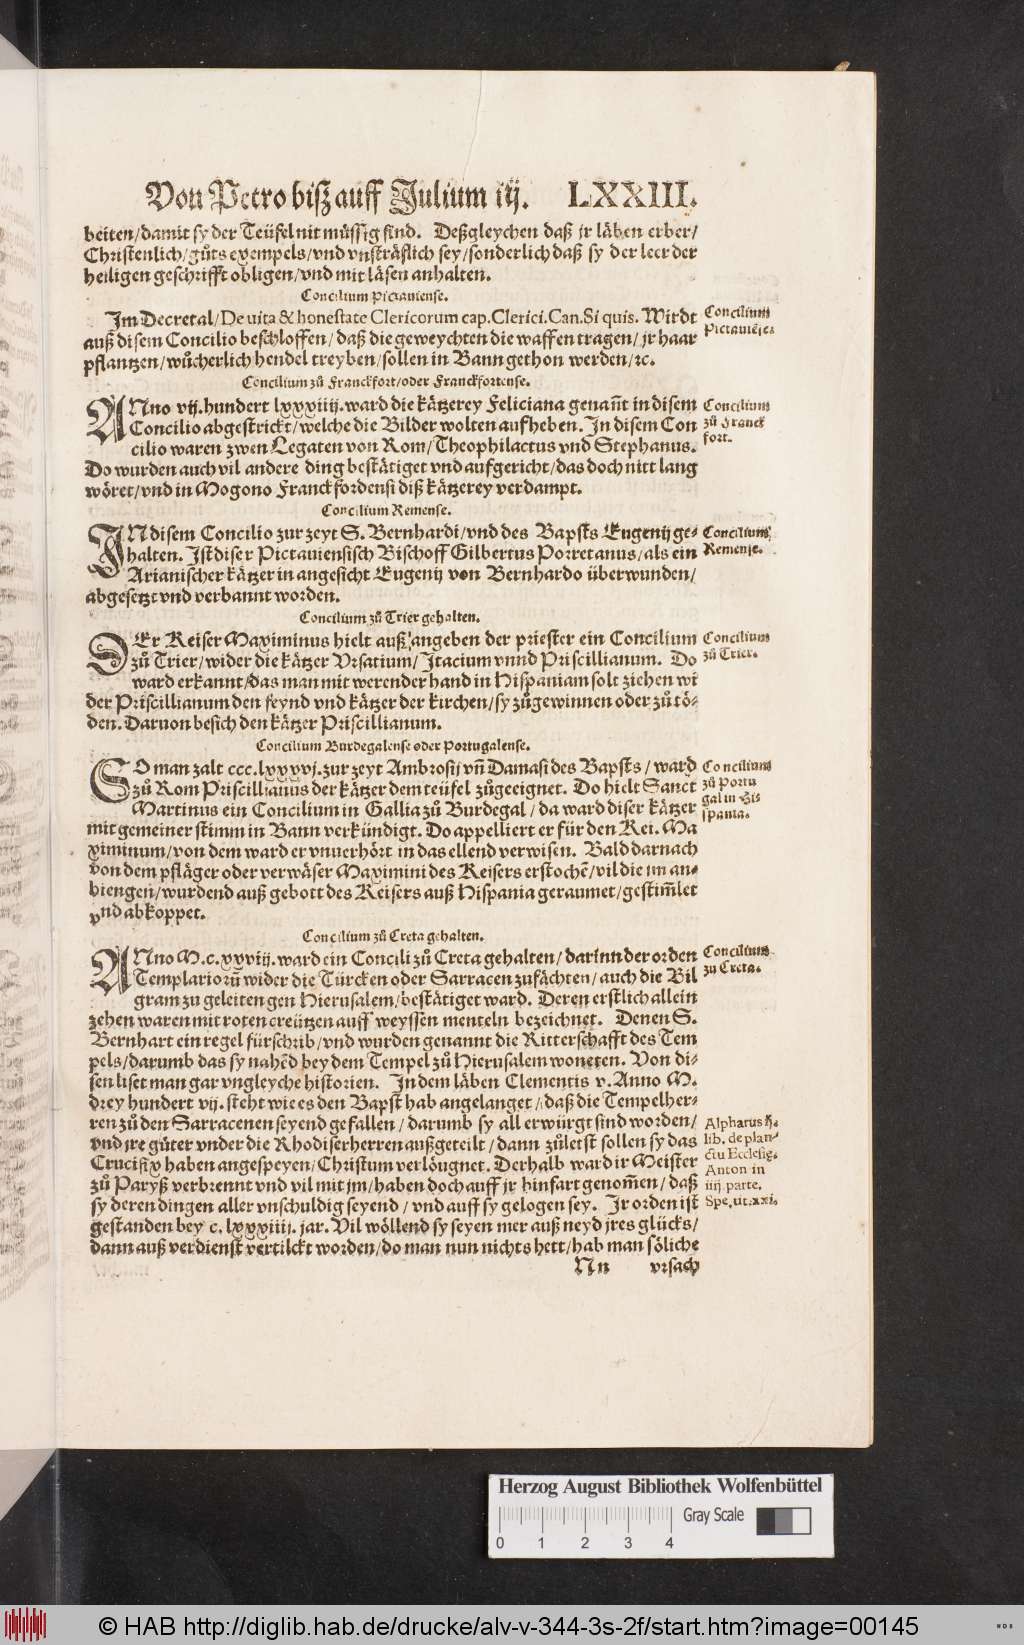 Von Petro biß auff Julium iij. LXXIII.
beiten/damit sy der Teüfel nit müssig find. Deßgleychen daß jr läben erber/
Christenlich/gůts exempels/vnd vnsträflich sey/sonderlich daß sy der leer der
heiligen geschrifft obligen/vnd mit läsen anhalten.
Concilium Pictauiense.
Im Decretal/De uita & honestate Clericorum cap. Clerici. Can. Si quis. Wirdt
auß disem Concilio beschlossen/daß die geweychten die waffen tragen/jr haar
pflantzen/wůcherlich hendel treyben/sollen in Bann gethon werden/ꝛc.
Concilium
Pictauiẽse.
Concilium zů Franckfort/oder Franckfortense.
ANno vij. hundert lxxxiiij. ward die kätzerey Feliciana genañt in disem
Concilio abgestrickt/welche die Bilder wolten aufheben. In disem Con
cilio waren zwen Legaten von Rom/Theophilactus vnd Stephanus.
Do wurden auch vil andere ding bestätiget vnd aufgericht/das doch nitt lang
wöret/vnd in Mogono Franckfordensi diß kätzerey verdampt.
Concilium
zů Franck
fort.
Concilium Remense.
IN disem Concilio zur zeyt S. Bernhardi/vnd des Bapsts Eugenij ge-
halten. Ist diser Pictauiensisch Bischoff Gilbertus Porretanus/als ein
Arianischer kätzer in angesicht Eugenij von Bernhardo überwunden/
abgesetzt vnd verbannt worden.
Concilium
Remense.
Concilium zů Trier gehalten.
DEr Keiser Maximinus hielt auß angeben der priester ein Concilium
zů Trier/wider die kätzer Vrsatium/Itacium vnnd Priscillianum. Do
ward erkannt/das man mit werender hand in Hispaniam solt ziehen wi
der Priscillianum den feynd vnd kätzer der kirchen/sy zůgewinnen oder zů tö-
den. Daruon besich den kätzer Priscillianum.
Concilium
zů Trier.
Concilium Burdegalense oder Portugalense.
SO man zalt ccc. lxxxvj. zur zeyt Ambrosij vñ Damasi des Bapsts/ward
zů Rom Priscillianus der kätzer dem teüfel zůgeeignet. Do hielt Sanct
Martinus ein Concilium in Gallia zů Burdegal/da ward diser kätzer
mit gemeiner stimm in Bann verkündigt. Do appelliert er für den Kei. Ma
ximinum/von dem ward er vnuerhört in das ellend verwisen. Bald darnach
von dem pfläger oder verwäser Maximini des Keisers erstochẽ/vil die im an-
biengen/wurdend auß gebott des Keisers auß Hispania geraumet/gestim̃let
vnd abkoppet.
Concilium
zů Portu
gal in Hi-
spania.
Concilium zů Creta gehalten.
ANno M.c.xxviij. ward ein Concili zů Creta gehalten/darinn der orden
Templariorũ wider die Türcken oder Sarracen zufächten/auch die Bil
gram zu geleiten gen Hierusalem/bestätiget ward. Deren erstlich allein
zehen waren mit roten creützen auff weyssen menteln bezeichnet. Denen S.
Bernhart ein regel fürschrib/vnd wurden genannt die Ritterschafft des Tem
pels/darumb das sy nahẽd bey dem Tempel zů Hierusalem woneten. Von di-
sen liset man gar vngleyche historien. In dem läben Clementis v. Anno M.
drey hundert vij. steht wie es den Bapst hab angelanget/daß die Tempelher-
ren zů den Sarracenen seyend gefallen/darumb sy all erwürgt sind worden/
vnd jre güter vnder die Rhodiserherren außgeteilt/dann zůletst sollen sy das
Crucifix haben angespeyen/Christum verlöugnet. Derhalb ward ir Meister
zů Paryß verbrennt vnd vil mit jm/haben doch auff jr hinfart genom̃en/daß
sy deren dingen aller vnschuldig seyend/vnd auff sy gelogen sey. Ir orden ist
gestanden bey c.lxxxiiij. jar. Vil wöllend sy seyen mer auß neyd jres glücks/
dann auß verdienst vertilckt worden/do man nun nichts hett/hab man söliche
Concilium
zu Creta.
Alpharus H.
lib. de plan-
ctu Ecclesię.
Anton in
iiij. parte.
Spe. ut. xxi.
Nn vrsach
Herzog August Bibliothek Wolfenbüttel
0 1 2 3 4 Gray Scale
© HAB http://diglib.hab.de/drucke/alv-v-344-3s-2f/start.htm?image=00145